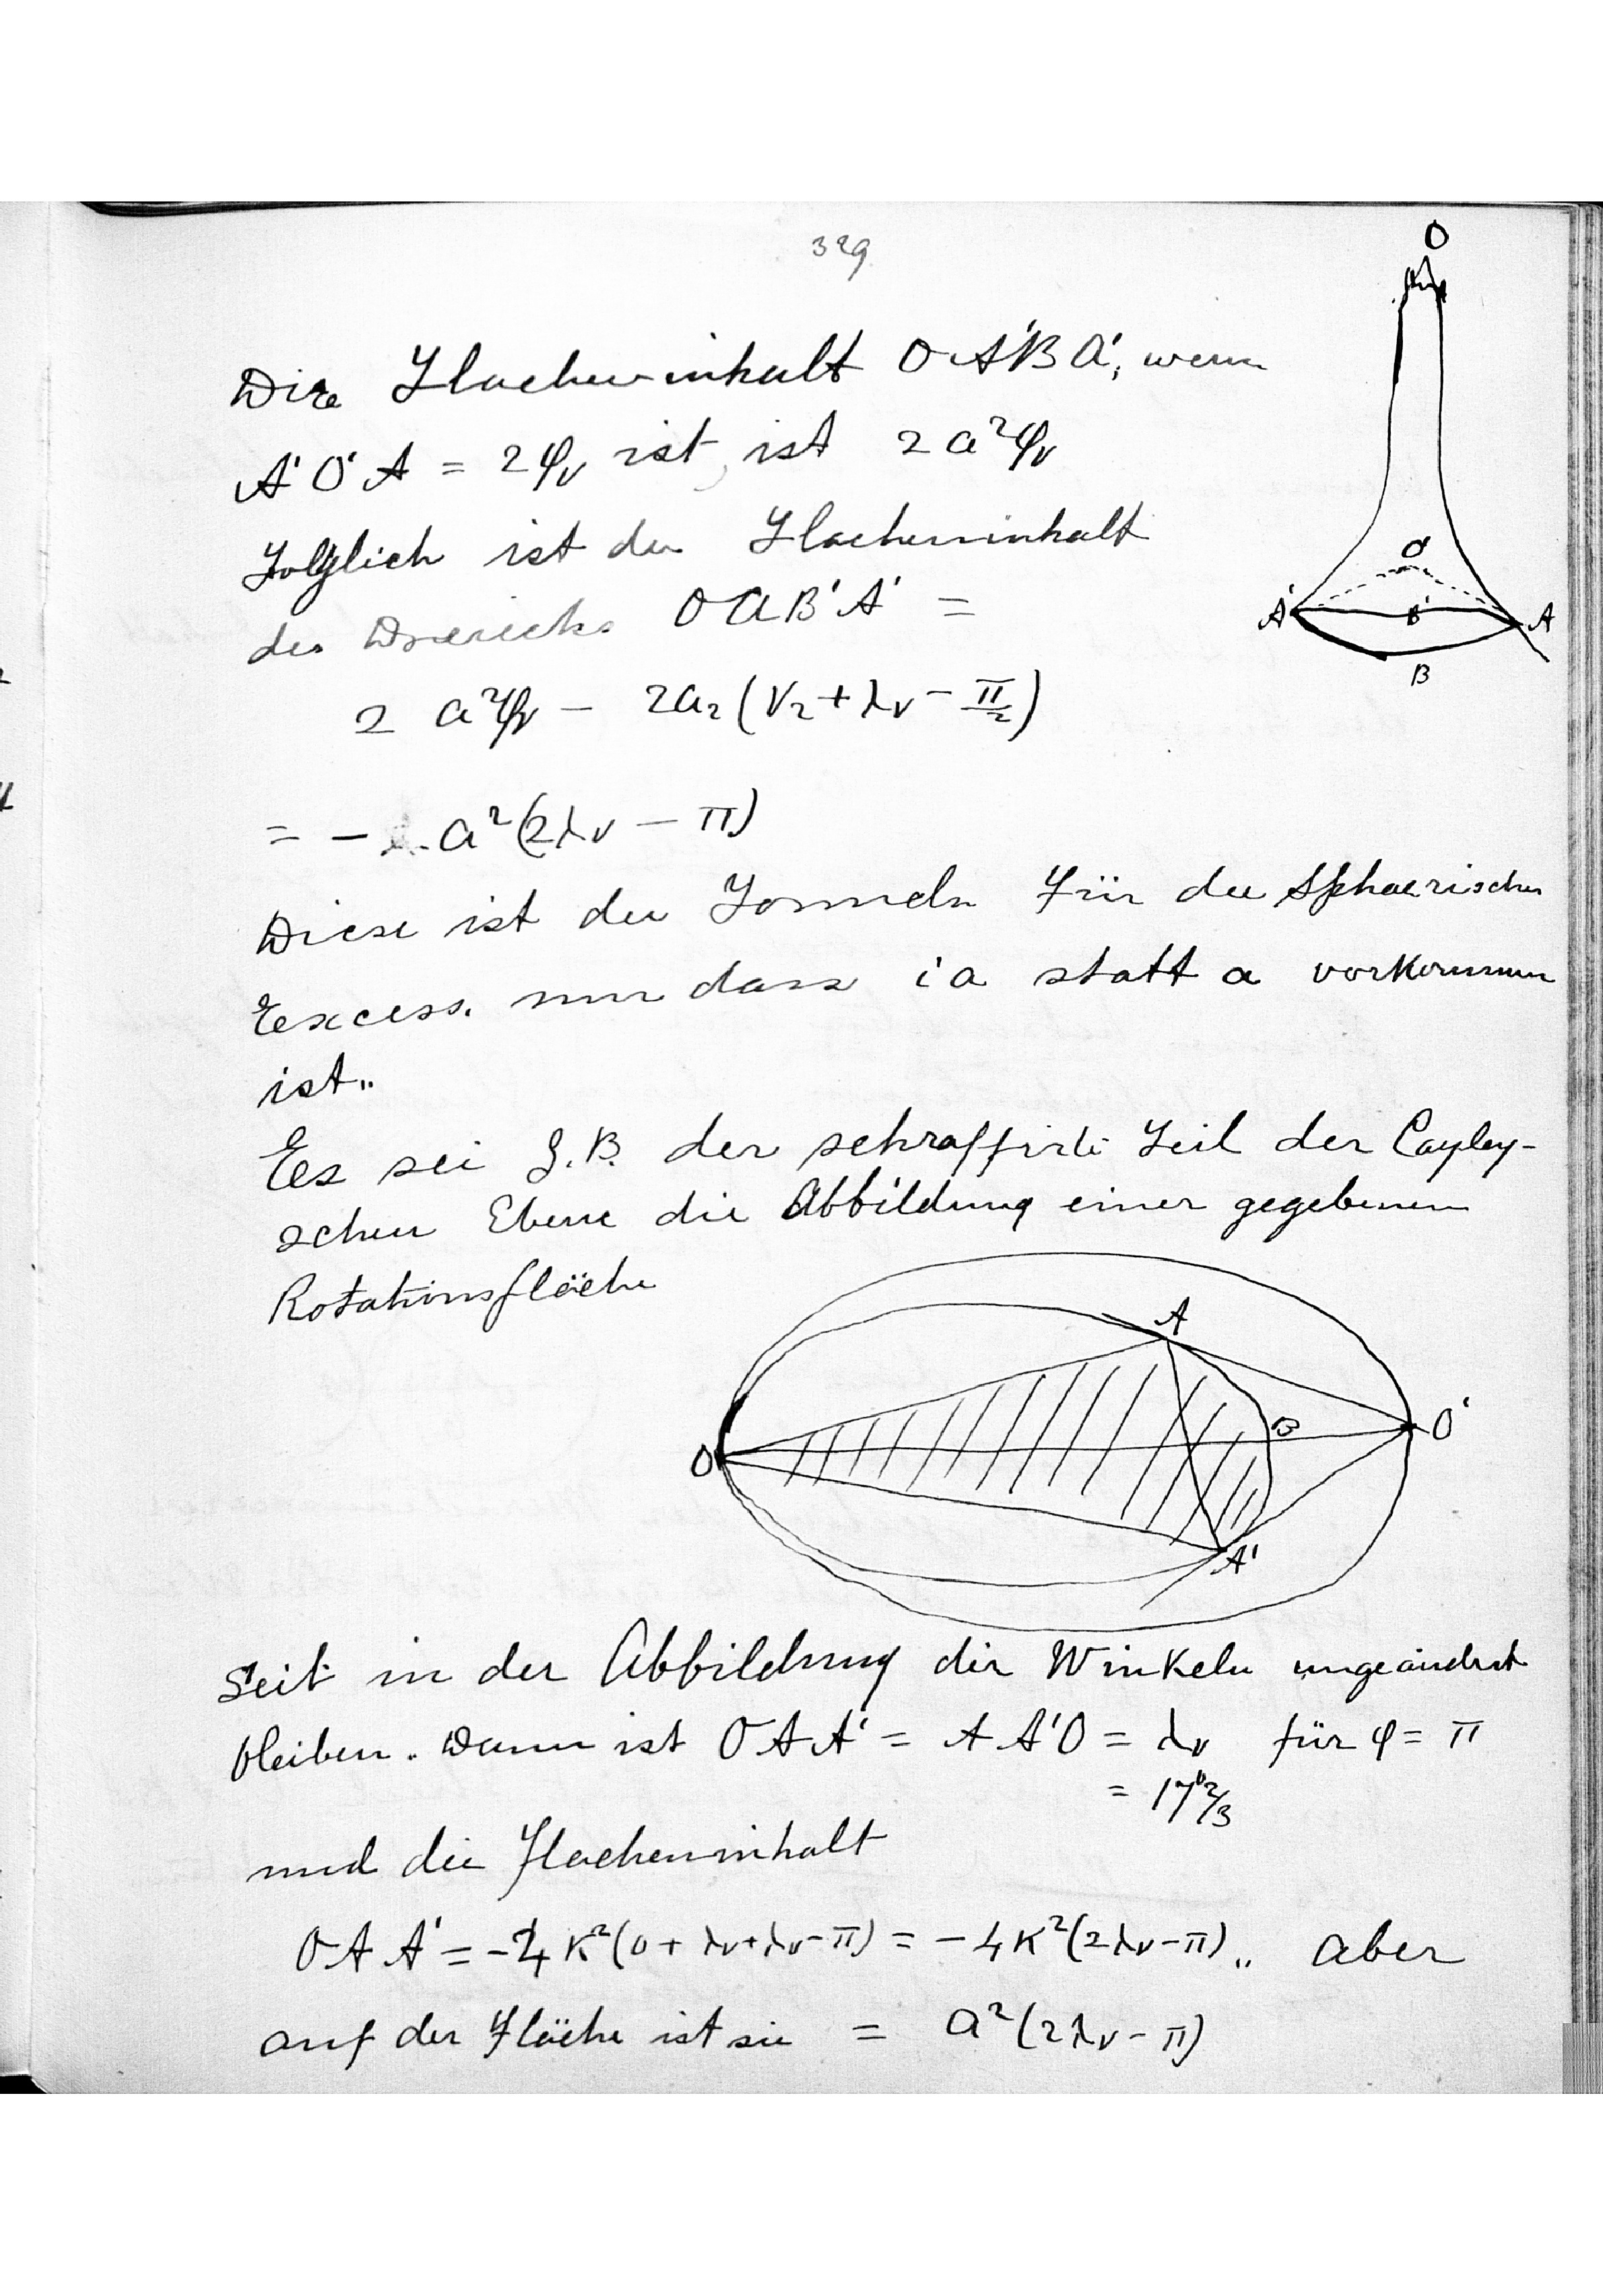 329
Die Flacheninhalt OA'BA', wenn
A'O'A = 2φᵥ ist, ist 2a²φᵥ
Folglich ist der Flacheninhalt
des Dreiecks OAB'A' =
2 a²φᵥ - 2a₂(V₂ + λᵥ - π/2)
= - a²(2λᵥ - π)
Diese ist der Formeln für die Sphaerischen
Excess. nur dass ia statt a vorkommen
ist..
Es sei z.B. der schraffirte Teil der Cayley-
schen Ebene die Abbildung einer gegebenen
Rotationsfläche
Seit in der Abbildung die Winkeln ungeändert
bleiben. Dann ist OAA' = AA'O = λᵥ für φ = π
= 17°2/3
und die Flacheninhalt
OAA' = -4K²(0 + λᵥ + λᵥ - π) = -4K²(2λᵥ - π).. aber
auf der Fläche ist sie = a²(2λᵥ - π)
O
O'
A'
B'
A
B
A
B
O'
O
A'